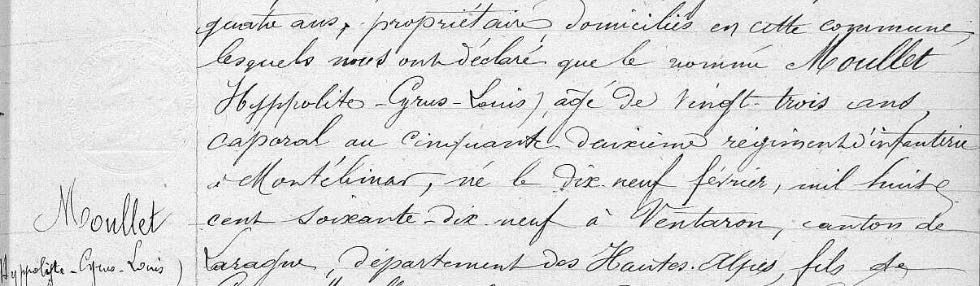 quatre ans, propriétaire, domiciliés en cette commune,
lesquels nous ont déclaré que le nommé Moullet
Hyppolite-Cyrus-Louis, âgé de vingt-trois ans,
caporal au cinquante-deuxième régiment d'infanterie
à Montélimar, né le dix-neuf février, mil huit
cent soixante-dix-neuf à Ventaron, canton de
Laragne, département des Hautes-Alpes, fils de
Moullet
Hyppolite-Cyrus-Louis